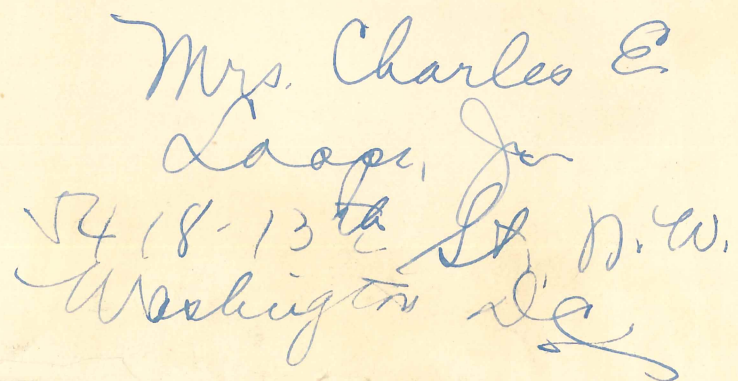 Mrs. Charles E
Jr
5418-13th St. N.W.
Washington D.C.